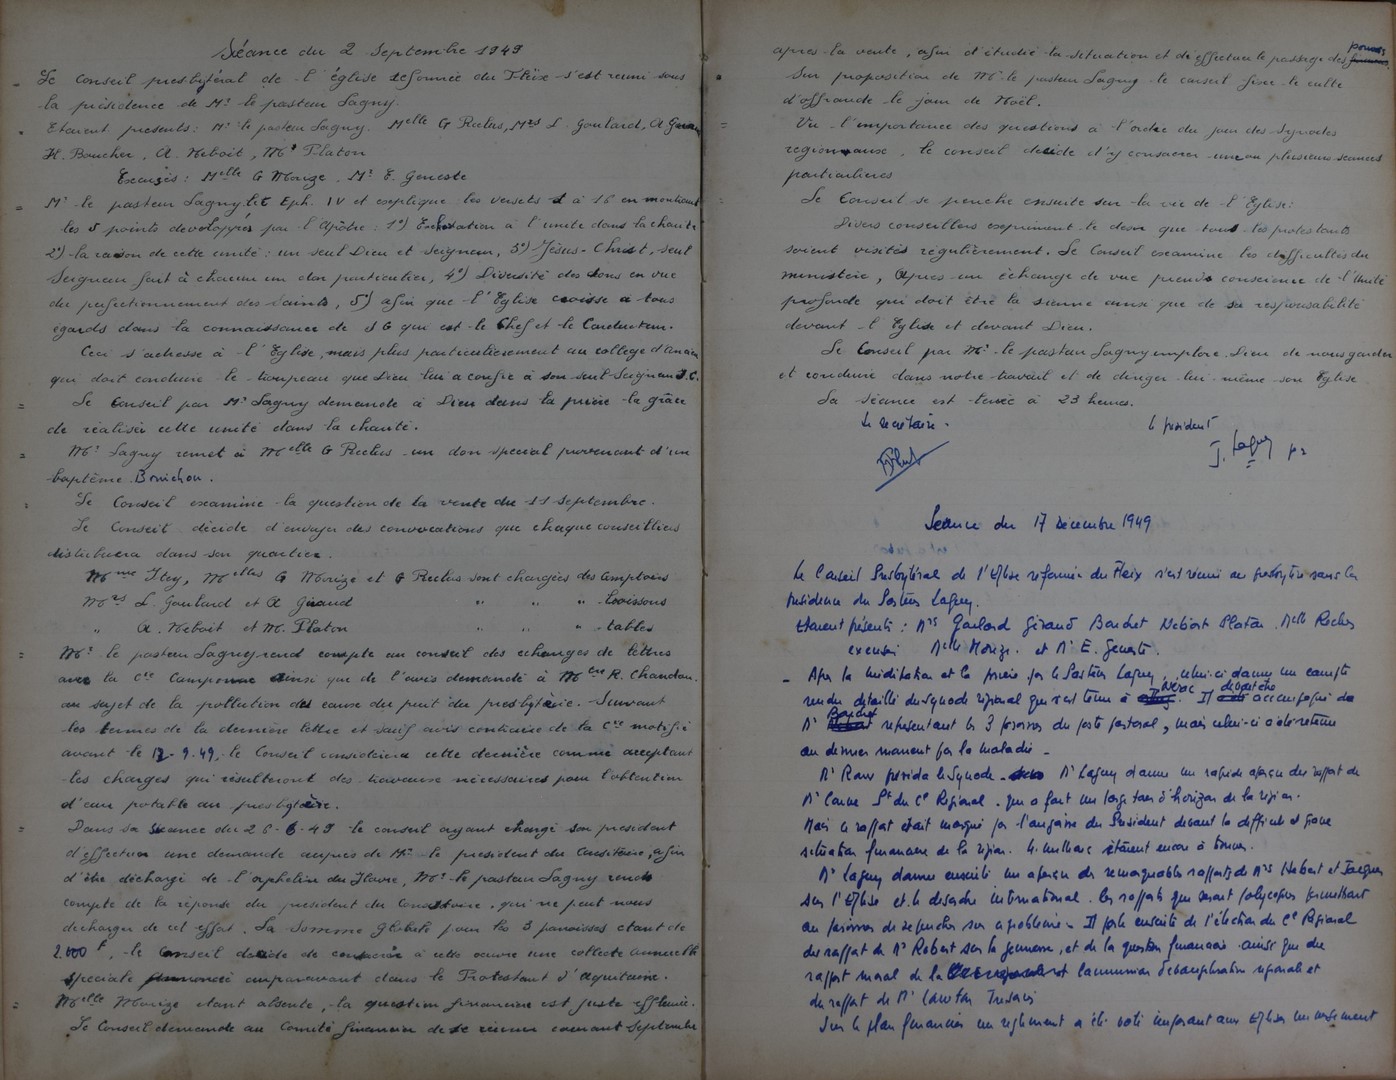 Séance du 2 Septembre 1949
Le Conseil presbytéral de l'église réformée du Fleix s'est réuni sous
la présidence de Mr le pasteur Lagny.
Etaient présents: Mr le pasteur Lagny. Melle G Reclus, Mrs L. Goulard, A Giraud
H. Boucher, A. Neboit, Mr Platon
Excusés: Melle G Morize, Mr E. Geneste
Mr le pasteur Lagny lit Eph. IV et explique les versets 1 à 16 en montrant
les 5 points développés par l'Apôtre: 1°) Exhortation à l'unité dans la charité
2°) la raison de cette unité: un seul Dieu et Seigneur, 3°) Jésus-Christ, seul
Seigneur fait à chacun un don particulier, 4°) Diversité des dons en vue
du perfectionnement des Saints, 5°) afin que l'Eglise croisse à tous
égards dans la connaissance de J C qui est le Chef et le Conducteur.
Ceci s'adresse à l'Eglise, mais plus particulièrement au collège d'Anciens
qui doit conduire le troupeau que Dieu lui a confié à son seul Seigneur J.C.
Le Conseil par Mr Lagny demande à Dieu dans la prière la grâce
de réaliser cette unité dans la charité.
Mr Lagny remet à Melle G Reclus un don spécial provenant d'un
baptême Bonichon.
Le Conseil examine la question de la vente du 11 septembre.
Le Conseil décide d'envoyer des convocations que chaque conseillers
distribuera dans son quartier.
Mme Itey, Melles G Morize et G Reclus sont chargées des Comptoirs
Mrs L. Goulard et A Giraud " " " boissons
" A. Neboit et M. Platon " " " tables
Mr le pasteur Lagny rend compte au conseil des échanges de lettres
avec la Cie ainsi que de l'avis demandé à Me R. Chandou
au sujet de la pollution des eaux du puit du presbytère. Suivant
les termes de la dernière lettre et sauf avis contraire de la Cie motifié
avant le 12-9-49, le Conseil considérera cette dernière comme acceptant
les charges qui résulteront des travaux nécessaires pour l'obtention
d'eau potable au presbytère.
Dans sa séance du 26-6-49 le conseil ayant chargé son président
d'effectuer une demande auprès de Mr le président du Consistoire, afin
d'être déchargé de l'orphelin du Havre, Mr le pasteur Lagny rend
compte de la réponse du président du Consistoire, qui ne peut nous
décharger de cet effort. La somme globale pour les 3 paroisses étant de
2.000 f, le Conseil décide de consacrer à cette oeuvre une collecte annuelle
spéciale annoncée auparavant dans le Protestant d'Aquitaine.
Melle Morize étant absente, la question financière est juste effleurée.
Le Conseil demande au Comité financier de se réunir courant septembre
après la vente, afin d'étudié la situation et d'effectuer le passage des pouvoirs
Sur proposition de Mr le pasteur Lagny le conseil fixe le culte
d'offrande le jour de Noël.
Vu l'importance des questions à l'ordre du jour des Synodes
régionaux, le conseil décide d'y consacrer une ou plusieurs séances
particulières
Le Conseil se penche ensuite sur la vie de l'Eglise:
Divers conseillers expriment le désir que tous les protestants
soient visités régulièrement. Le Conseil examine les difficultés du
ministère, Après un échange de vue prends conscience de l'Unité
profonde qui doit être la sienne ainsi que de sa responsabilité
devant l'Eglise et devant Dieu.
Le Conseil par Mr le pasteur Lagny implore Dieu de nous garder
et conduire dans notre travail et de diriger lui-même son Eglise
La séance est levée à 23 heures.
Le secrétaire. le président
J. Lagny
Séance du 17 Décembre 1949
Le Conseil Presbytéral de l'Eglise réformée du Fleix s'est réuni au presbytère sous la
présidence du Pasteur Lagny.
Etaient présents: Mrs Goulard Giraud Bouchet Nebout Platon. Melle Reclus
excusés Melle Morize. et Mr E. Geneste.
- Après la méditation et la prière par le Pasteur Lagny, celui-ci donne un compte
rendu détaillé du Synode régional qui s'est tenu à Nérac. Il accompagné de
Mr Bouchet représentant les 3 paroisses du poste pastoral, mais celui-ci a été retenu
au dernier moment par la maladie.
Mr Roux présida le Synode. Mr Lagny donne un rapide aperçu du rapport de
Mr du Ce Régional. qui a fait un large tour d'horizon de la région.
Mais ce rapport était marqué par l'angoisse du Président devant la difficile et grave
situation financière de la région. 4 millions étaient encore à trouver.
Mr Lagny donne ensuite un aperçu des remarquables rapports de Mrs Hebert et Jacques
sur l'Eglise et le désordre international. Ces rapports qui seront polycopiés permettront
aux paroisses de se pencher sur ce problème. Il parle ensuite de l'élection du Ce Régional
du rapport de Mr Robert sur la jeunesse, et de la question financière ainsi que du
rapport moral de la commission d'évangélisation régionale et
du rapport de Mr Trésorier
Sur le plan financier un règlement a été voté imposant aux Eglises un versement